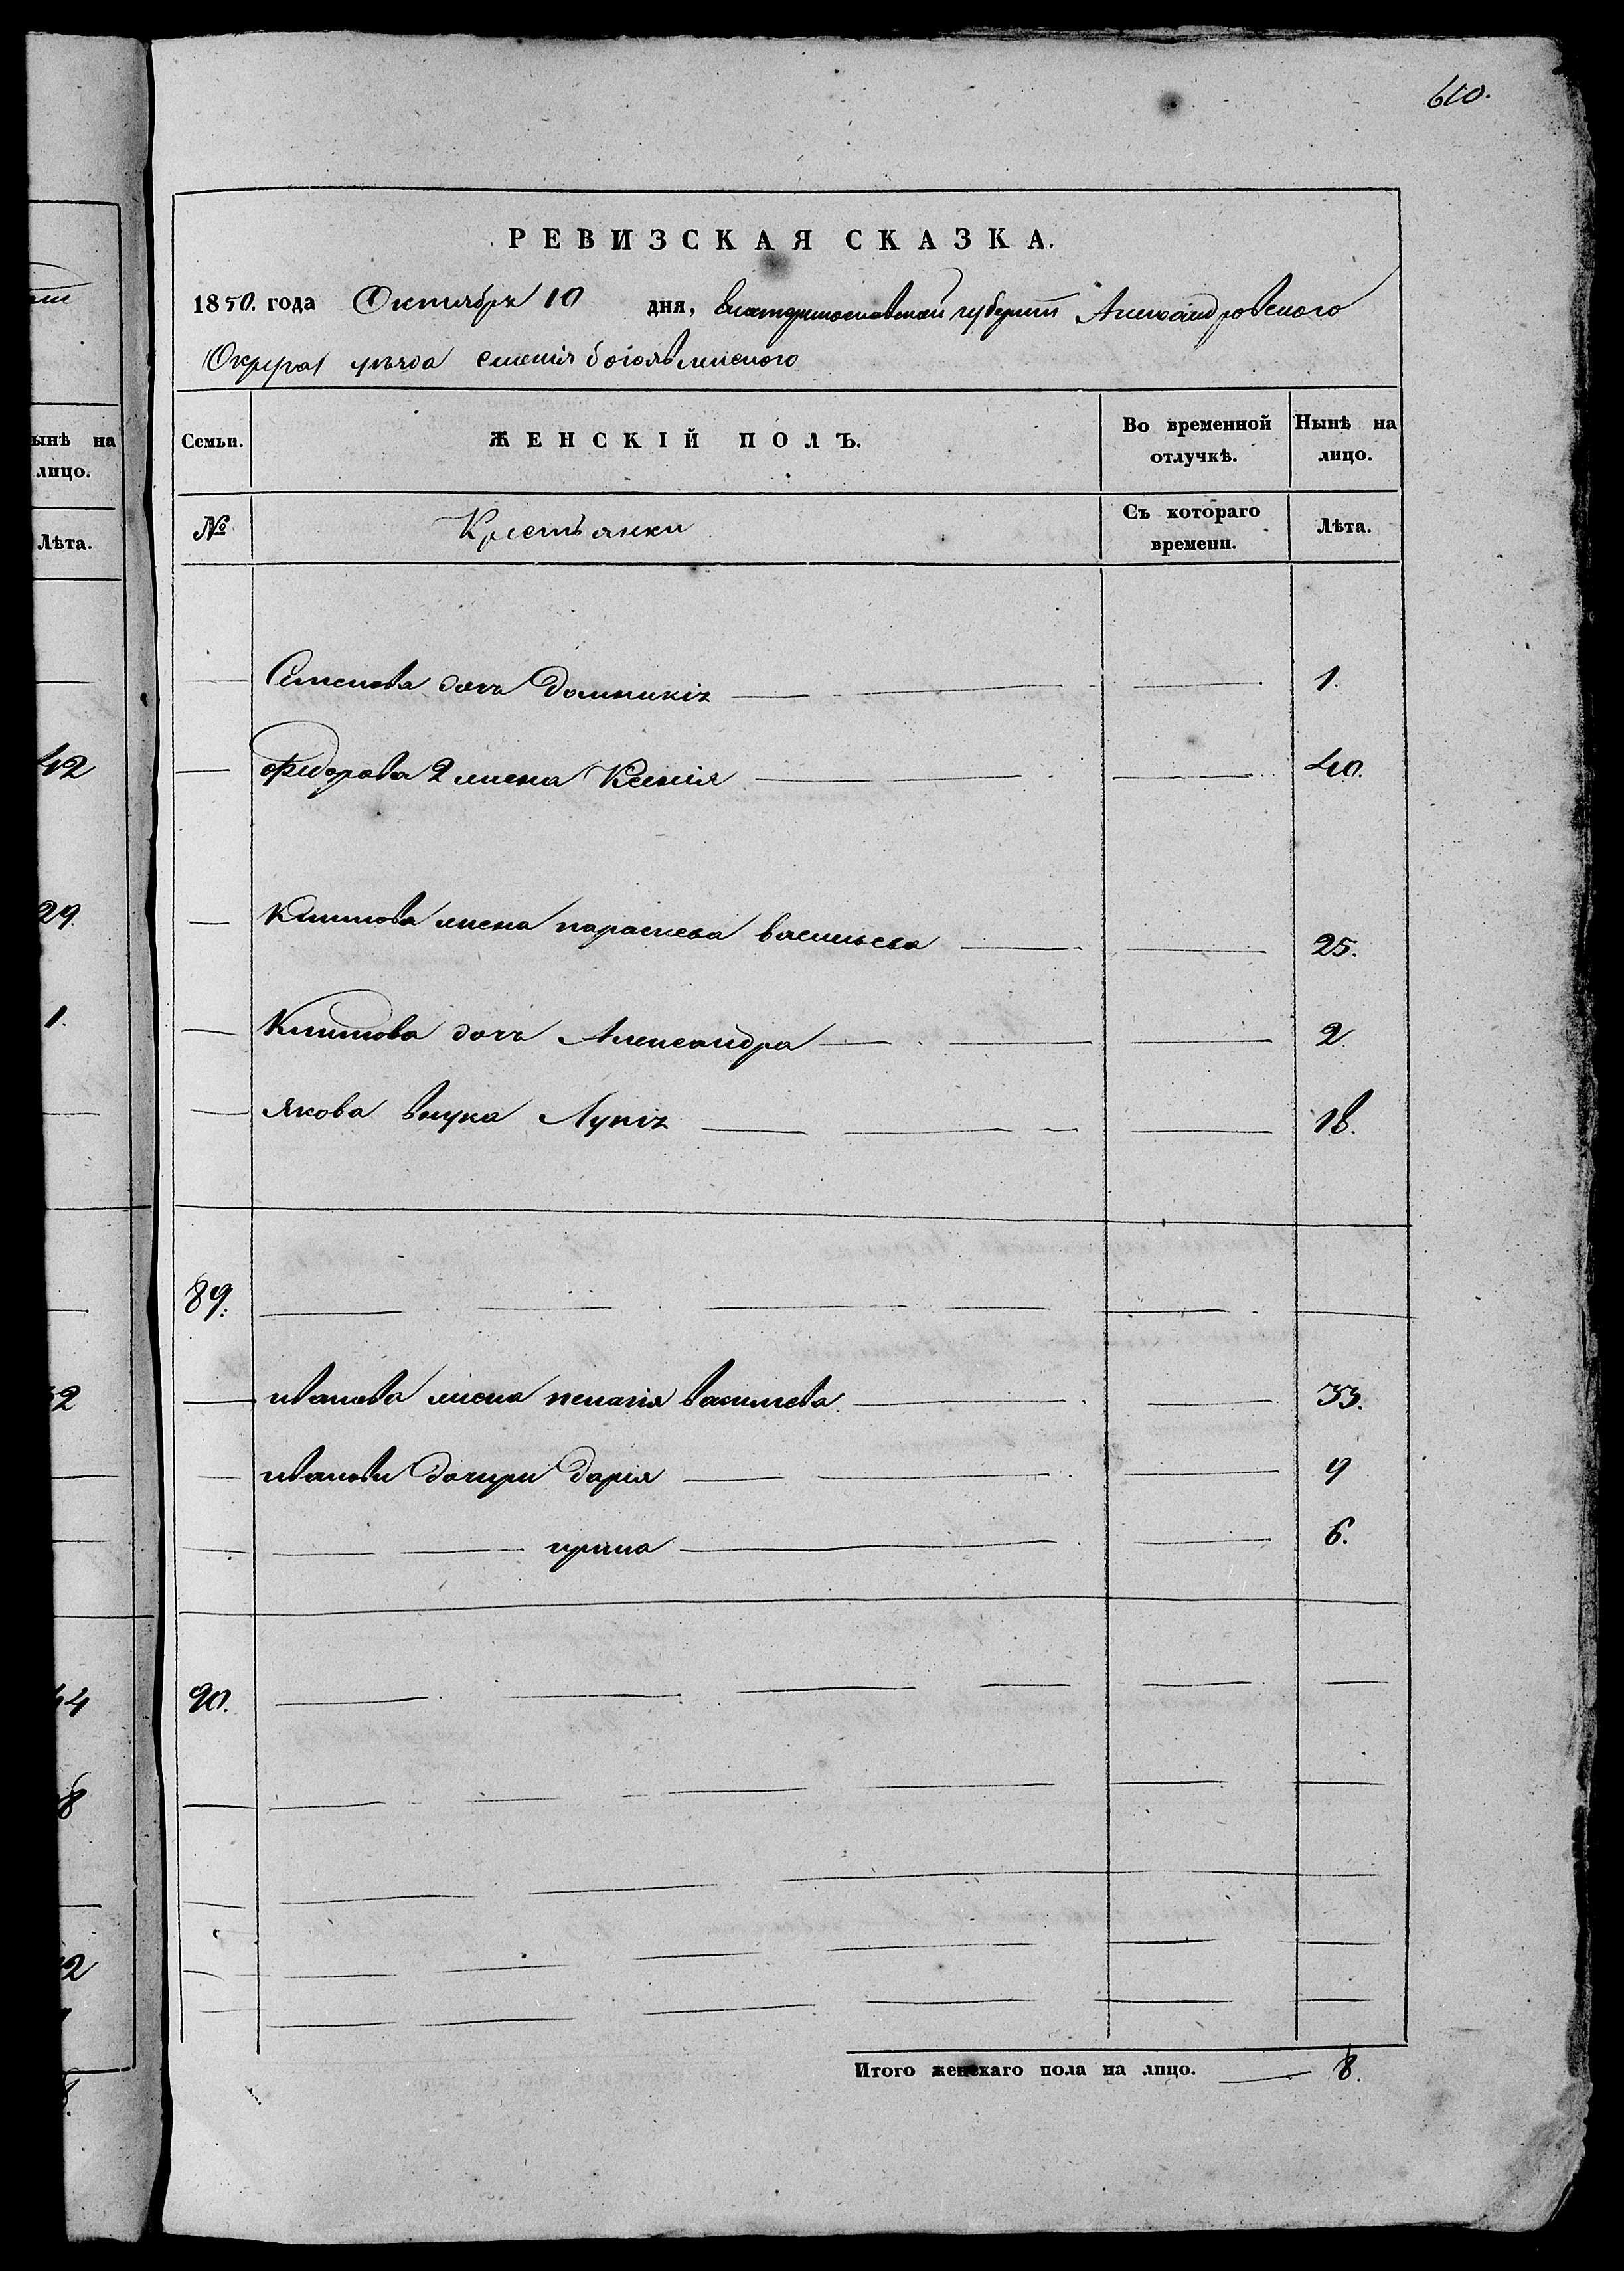 610.
РЕВИЗСКАЯ СКАЗКА.
1850. года Октября 10 дня, Екатеринославской губернии Александровского
Округа уезда имения Богоявленского
Семьи. ЖЕНСКІЙ ПОЛЪ. Во временной отлучкѣ. Нынѣ на лицо.
№ Крестьянки Съ котораго времени. Лѣта.
Семенова дочь Домникія 1.
Федорова 2 жена Ксения 40.
Климова жена параскева васильева 25.
Климова дочь Александра 2
Якова внука Лукія 18.
89.
иванова жена пелагія васильева 33.
ивановы дочери дарія 9
ирина 6.
90.
Итого женскаго пола на лицо. 8.
ынѣ на
лицо.
Лѣта.
42
29.
1.
2
44
8
2